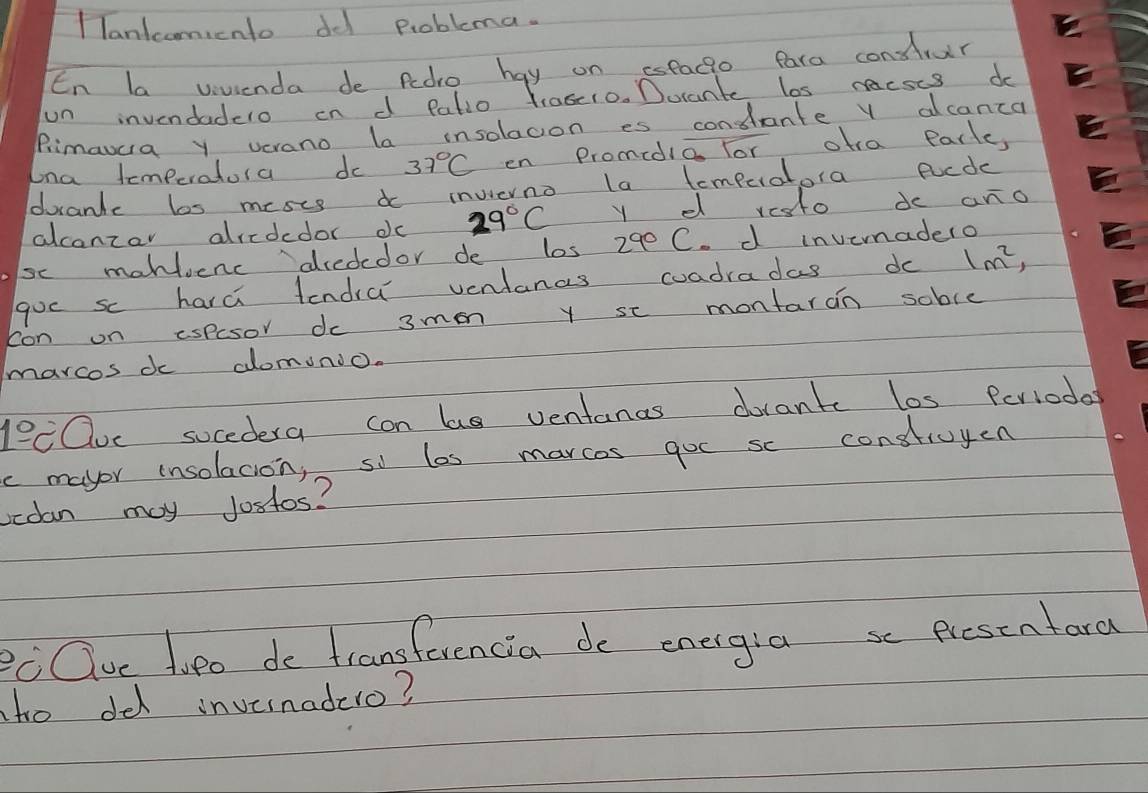 Planteamiento del Problema.
En la vivienda de Pedro hay un espacio Para construir
un invendadero en el Patio trasero. Durante los meses de
Primavera y verano la insolacion es constante y alcanza
una temperatura de 37°C en Promedio. Por otra Parte,
durante los meses de invierno la temperatura Puede
alcanzar alrededor de 29°C y el resto de año
se mantiene alrededor de los 29° C. el invernadero
que se hará tendrá ventanas cuadradas de 1m²,
con un espesor de 3mm y se montarán sobre
marcos de aluminio.
1º ¿Que sucedera con las ventanas durante los Periodos
e mayor insolación, si los marcos que se construyen
uedan muy Justos?
¿Que tipo de transferencia de energia se Presentara
ntro del invernadero?